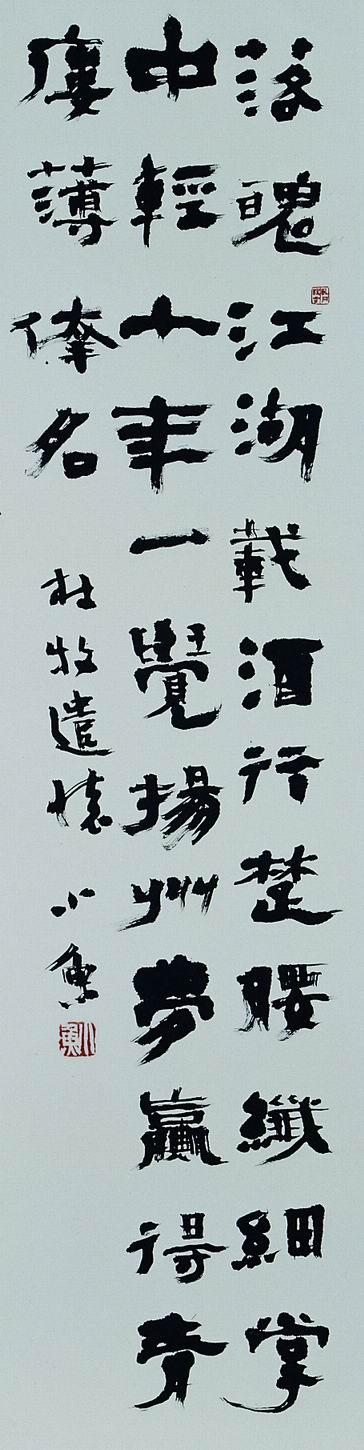 落魄江湖載酒行楚腰纖細掌
中輕十年一覺揚州夢贏得青
廔薄倖名
杜牧遣懷 小魚
小魚